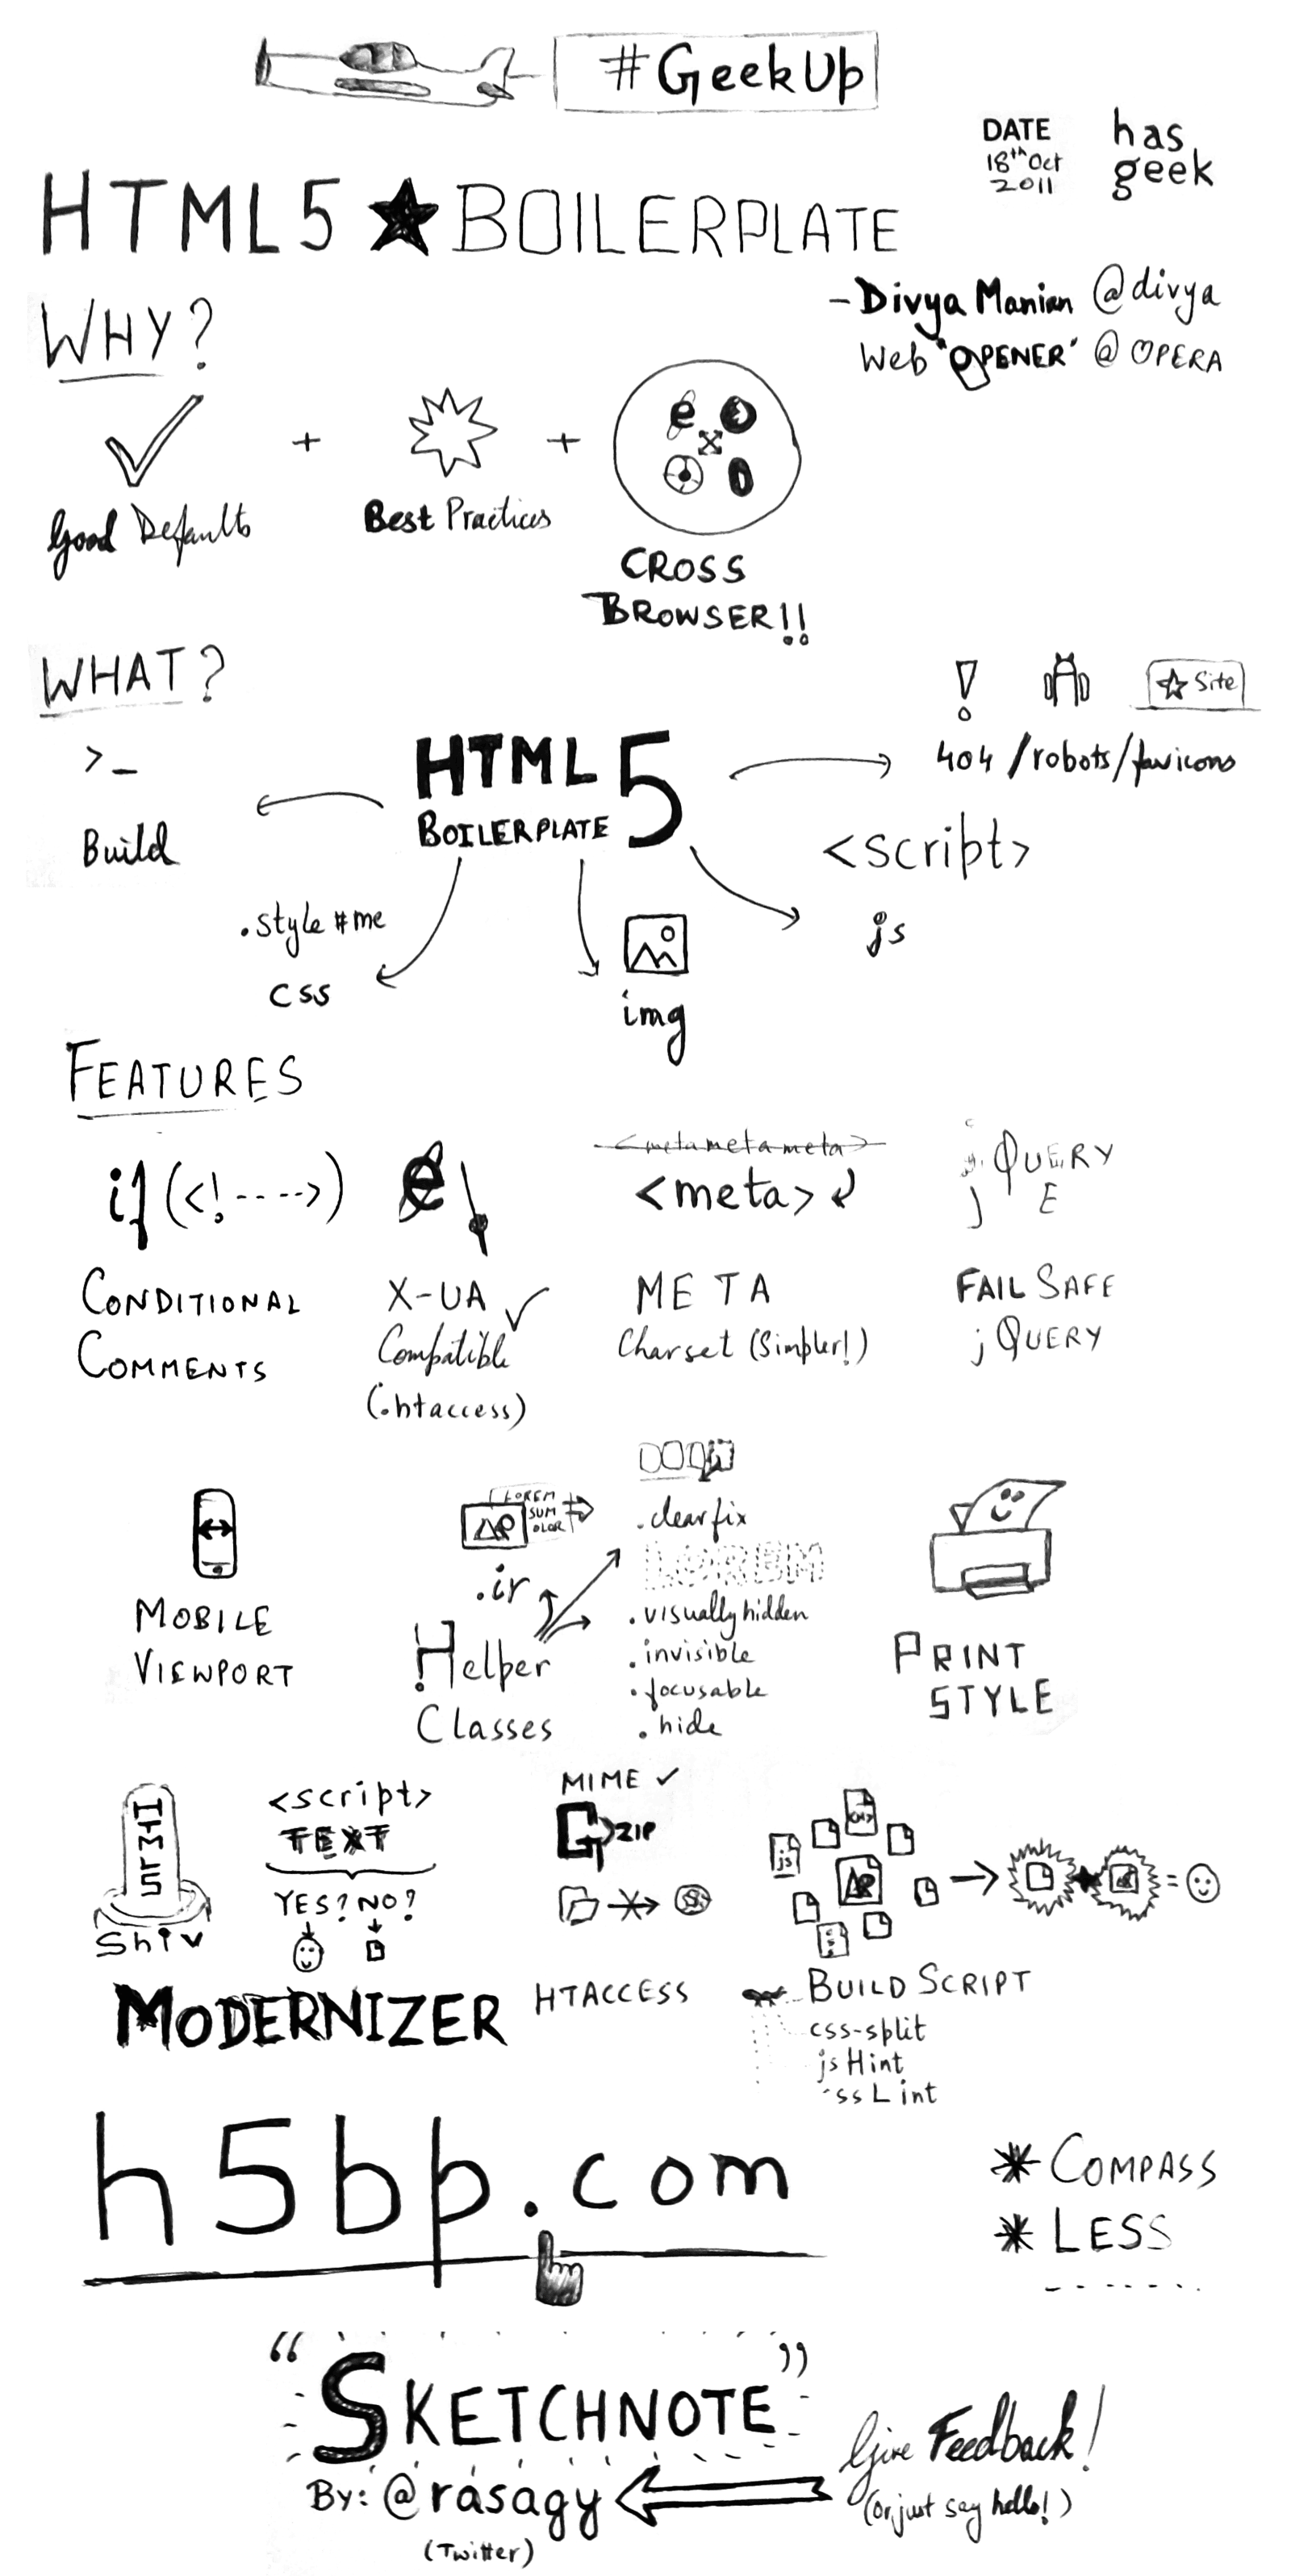 #GeekUp
DATE
18th Oct
2011
has
geek
HTML5 ★ BOILERPLATE
- Divya Manian @divya
Web "OPENER" @ OPERA
WHY?
+
+
Good Defaults
Best Practices
CROSS
BROWSER!!
WHAT?
☆ Site
404/robots/favicons
>_
Build
HTML5
BOILERPLATE
<script>
js
.style #me
css
img
FEATURES
if (<!---->)
e
<meta meta meta>
<meta>
jQUERY
E
CONDITIONAL
COMMENTS
X-UA ✓
Compatible
(.htaccess)
META
Charset (Simpler!)
FAIL SAFE
jQUERY
MOBILE
VIEWPORT
LOREM
SUM
OLOR
.ir
Helper
Classes
.clearfix
LOREM
.visuallyhidden
.invisible
.focusable
.hide
PRINT
STYLE
HTML5
Shiv
<script>
TEXT
YES? NO?
MODERNIZER
MIME ✓
G ZIP
HTACCESS
js
=
BUILD SCRIPT
css-split
jsHint
ssLint
h5bp.com
* COMPASS
* LESS
"SKETCHNOTE"
By: @rasagy
(Twitter)
Give Feedback!
(Or, just say hello!)